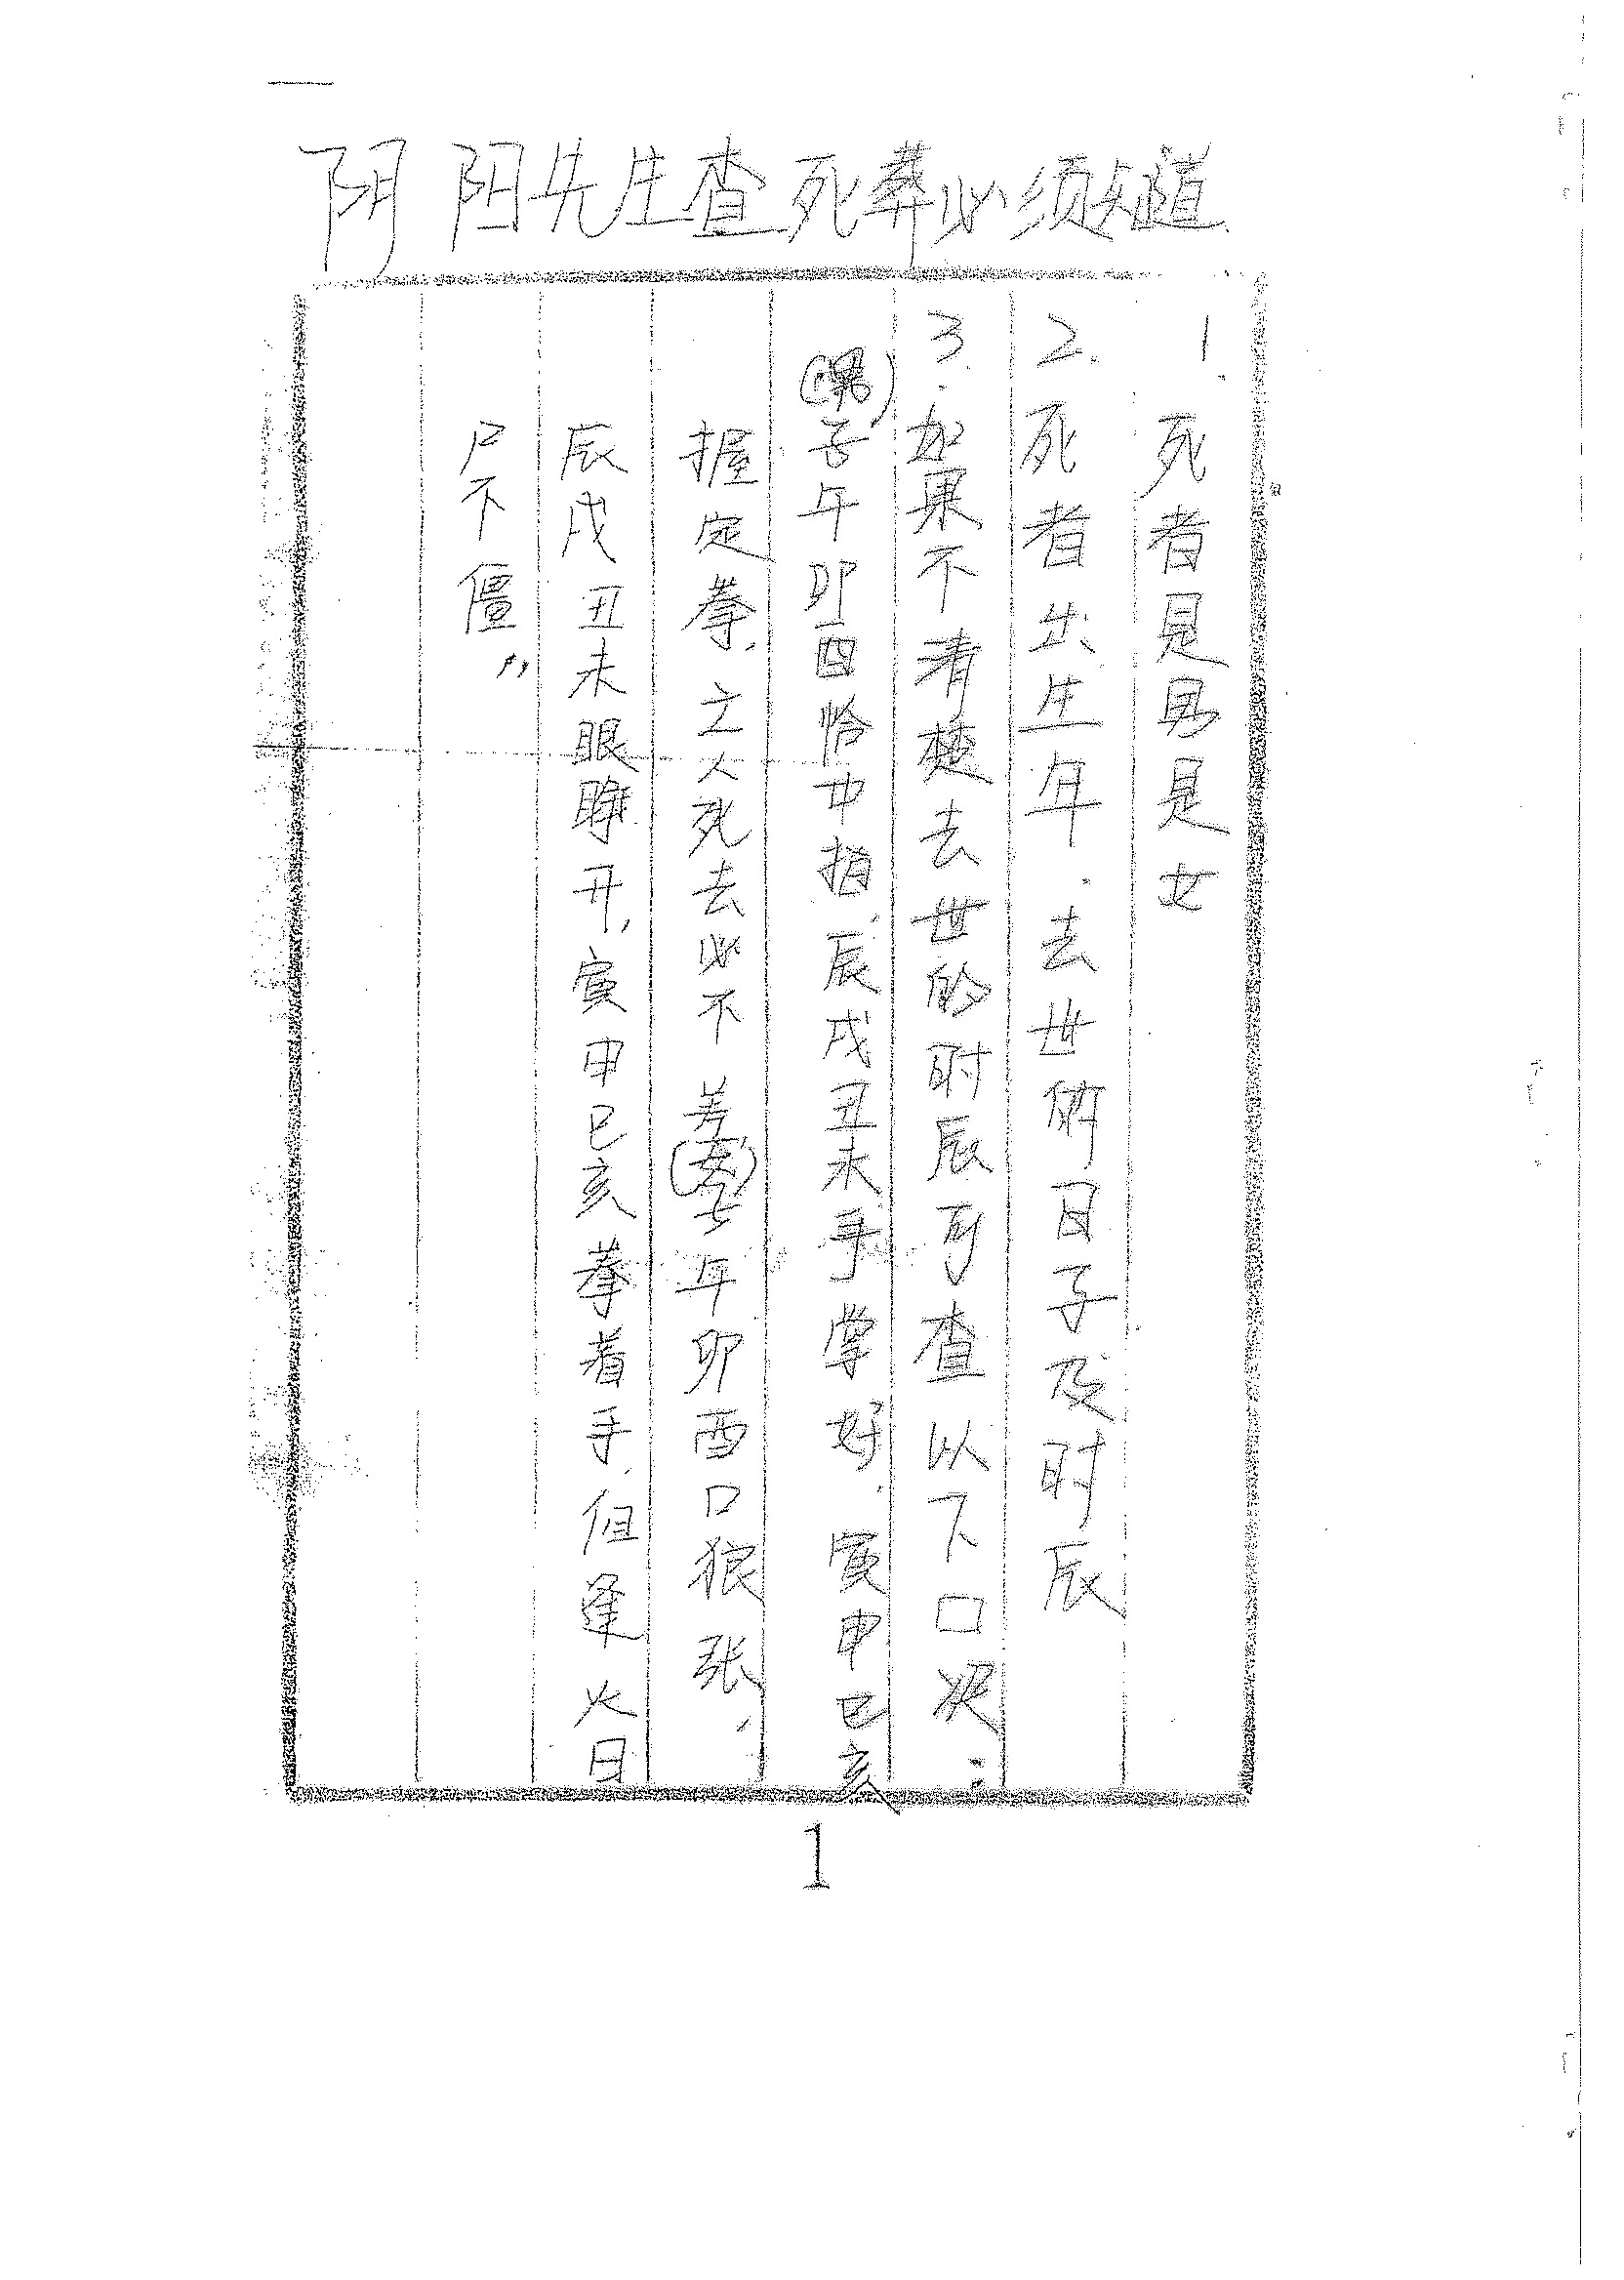 阴阳先生查死葬必须知道
1.死者是男是女
2.死者出生年.去世的日子及时辰
3.如果不清楚去世的时辰可查以下口诀:
(男)子午卯酉恰中指.辰戌丑未手掌好.寅申巳亥
握定拳.之人死去必不差(女)子午卯酉口狼张,
辰戌丑未眼睁开,寅申巳亥拳着手,但逢火日
尸不僵,,
1